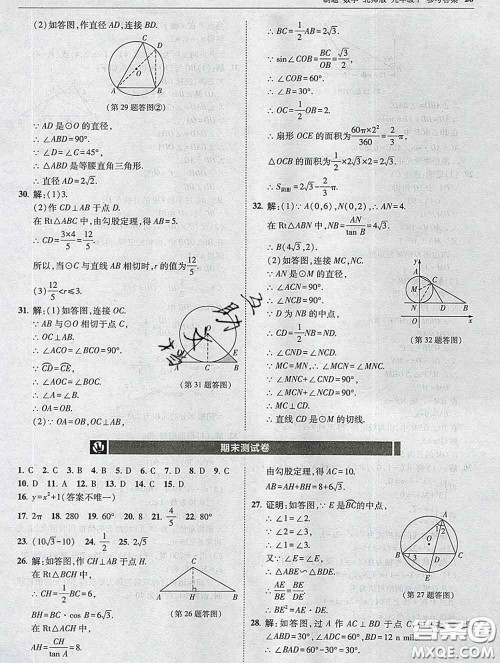 (2)如答图,作直径AD,连接BD.
(第29题答图②)
∵ AD是⊙O的直径,
∴ ∠ABD=90°.
∵ ∠D=∠C=45°,
∴ △ABD是等腰直角三角形.
∴ 直径AD=2√2.
30. 解:(1)3.
(2)作CD⊥AB于点D.
在Rt△ABC中,由勾股定理,得AB=5.
∴ CD=3×4/5=12/5.
所以,当⊙C与直线AB相切时,r的值为12/5.
(3)12/5<r≤3.
31. 解:(1)如答图,连接OC.
∵ AB与⊙O相切于点C,
∴ OC⊥AB.
∴ ∠ACO=∠BCO=90°.
∵ CD=CE,
∴ ∠AOC=∠BOC.
∴ ∠A=∠B.
∴ OA=OB.
(2)∵ OA=OB,OC⊥AB,
(第31题答图)
∴ BC=1/2AB=2√3.
∵ sin∠COB=BC/OB=√3/2,
∴ ∠COB=60°.
∴ ∠B=30°.
∴ OC=1/2OB=2.
∴ 扇形OCE的面积为60π×2²/360=2π/3,
△OCB的面积为1/2×2√3×2=2√3.
∴ S阴影=2√3-2/3π.
32. 解:(1)∵ A(0,6),N(0,2),∴ AN=4.
在Rt△ABN中,NB=AN/tan B=4√3,
∴ B(4√3,2).
(2)如答图,连接MC,NC.
∵ AN是⊙M的直径,
∴ ∠ACN=90°.
∴ ∠NCB=90°.
∵ D为NB的中点,
∴ CD=1/2NB=ND.
∴ ∠CND=∠NCD.
∵ MC=MN,
∴ ∠MCN=∠MNC.
∵ ∠MNC+∠CND=90°,
∴ ∠MCN+∠NCD=90°.
∴ MC⊥CD.
∴ 直线CD是⊙M的切线.
(第32题答图)
期末测试卷
1. C 2. C 3. C 4. C 5. B 6. C 7. D 8. D 9. C
10. D 11. A 12. C 13. D 14. C 15. D
16. y=x²+1(答案不唯一)
17. 2π 18. 280 19. 60° 20. 2 21. 4/5 22. 80°
23. (10√3-10) 24. 1/2 25. 2√3
26. 解:如答图,作CH⊥AB于点H.
在Rt△BCH中,
∴ CH=1/2BC=6,
BH=BC·cos B=6√3.
在Rt△ACH中,
AH=CH/tan A=8.
(第26题答图)
由勾股定理,得AC=10.
AB=AH+BH=8+6√3.
27. 证明:如答图,∵ E是BC的中点,
∴ ∠1=∠2.
∵ ∠2=∠3,
∴ ∠1=∠3.
∵ ∠E=∠E,
∴ △BDE∽△ABE.
∴ AE/BE=BE/DE.
∴ BE²=AE·DE.
(第27题答图)
28. 解:如答图,过点A作AD⊥
∠ABD=30°,∠BAD=60°
∴ ∠BDA=90°,BD=12 n mil
答案圈
MXQE.COM